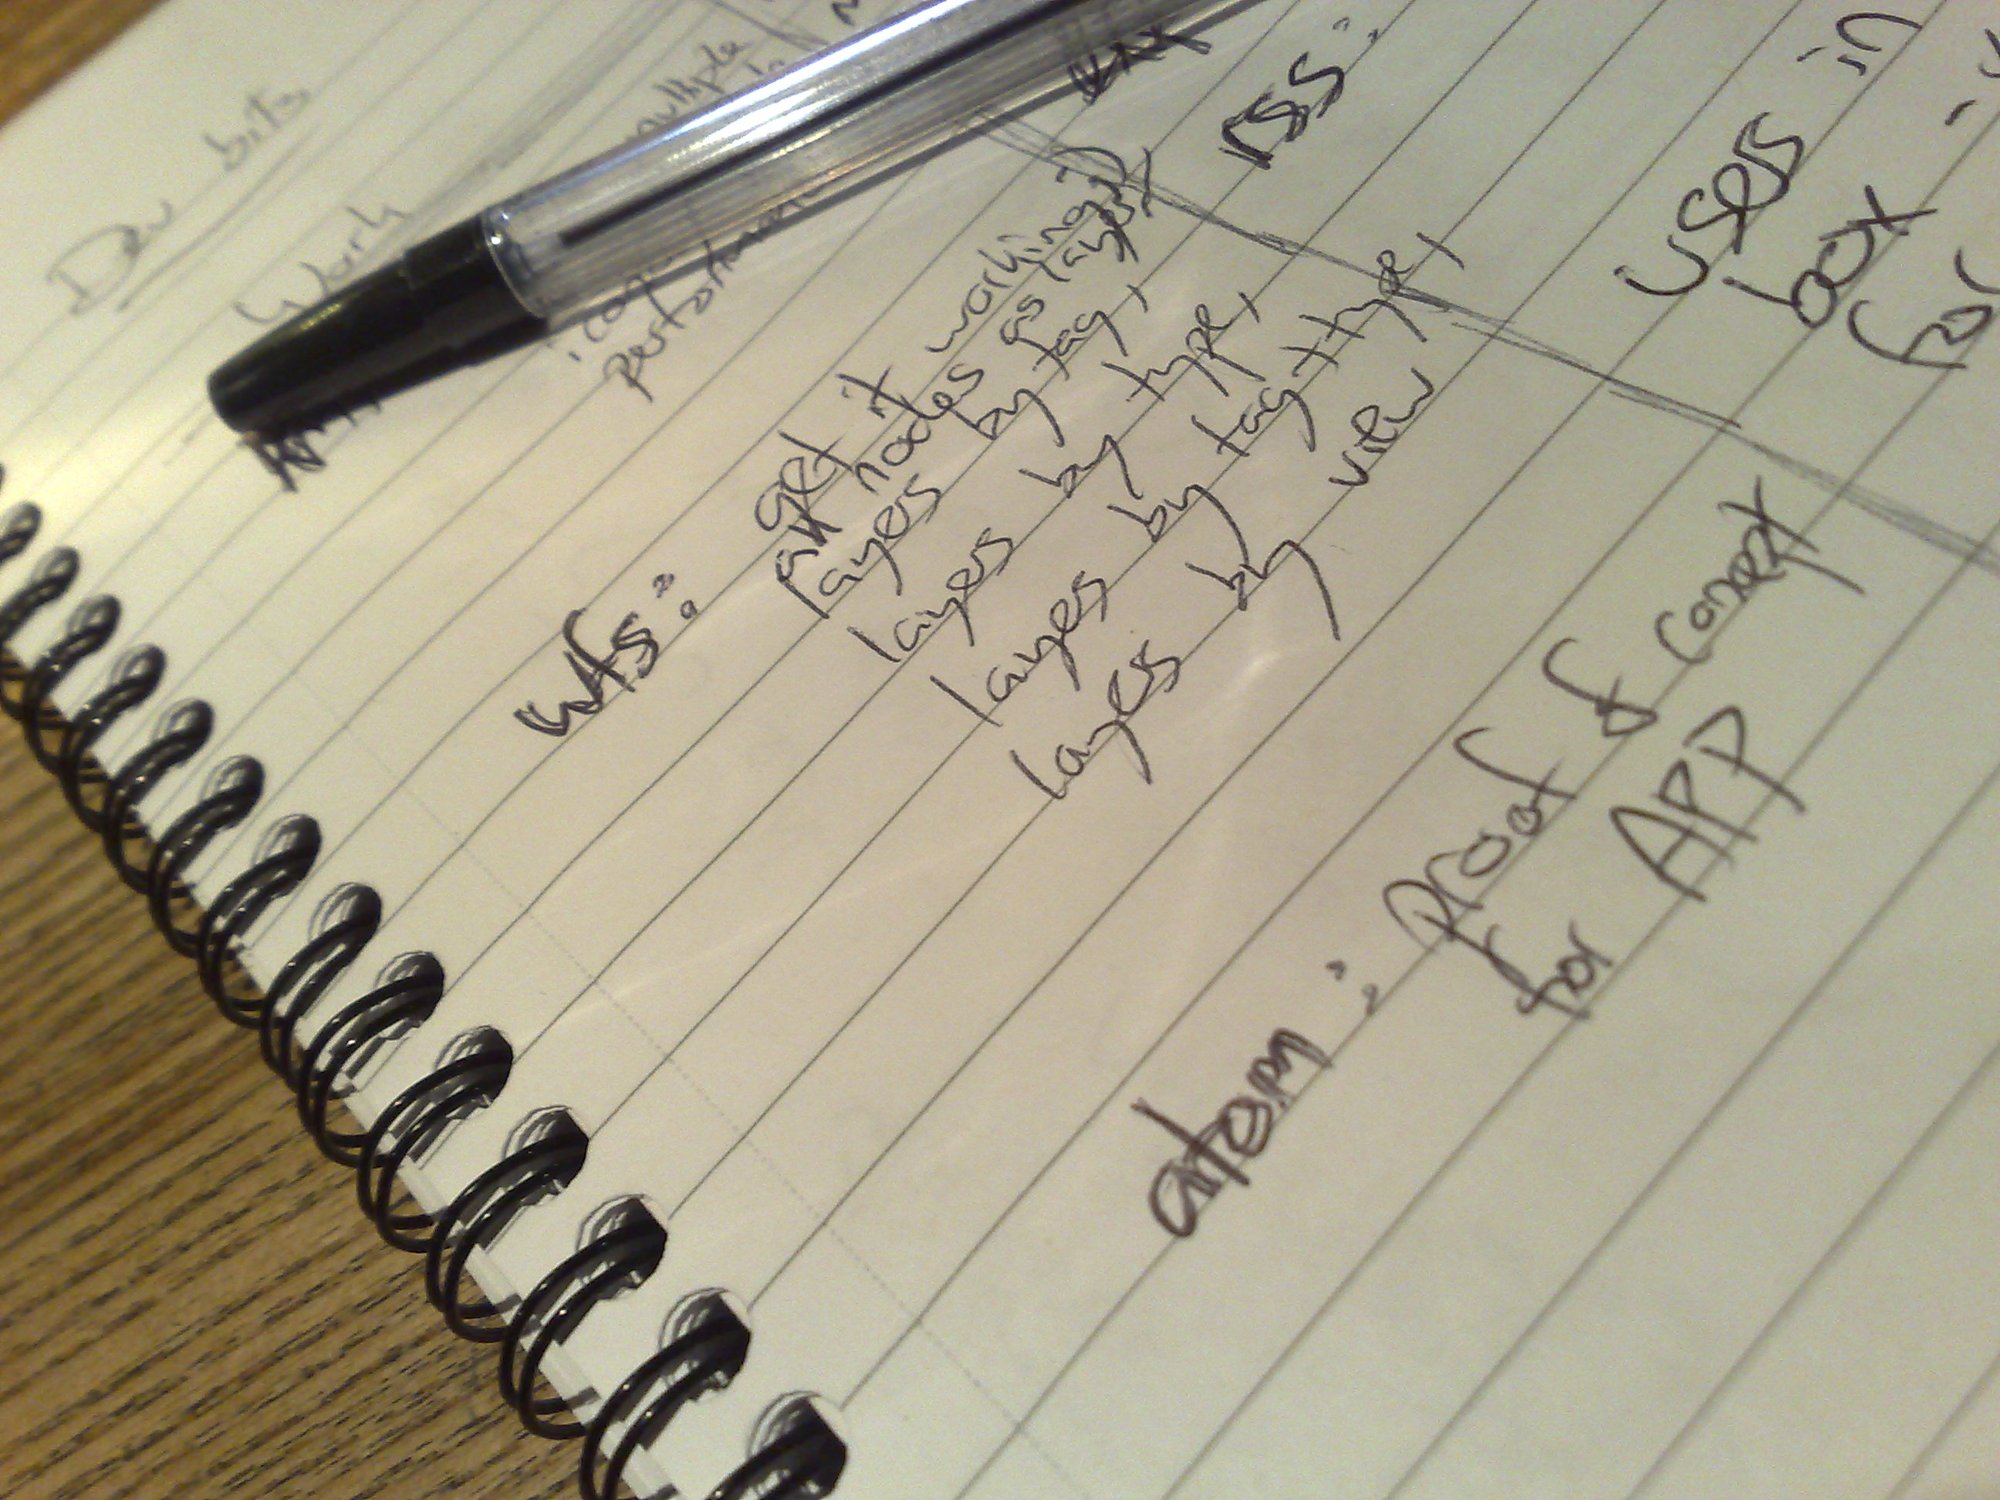 Dev bits
work
multiple
icon
performan
wfs: get it working
all nodes as layer
layers by tag,
layers by type,
layers by tag + type,
layers by view
atom: proof of concept
for APP
rss:
users in
box
for